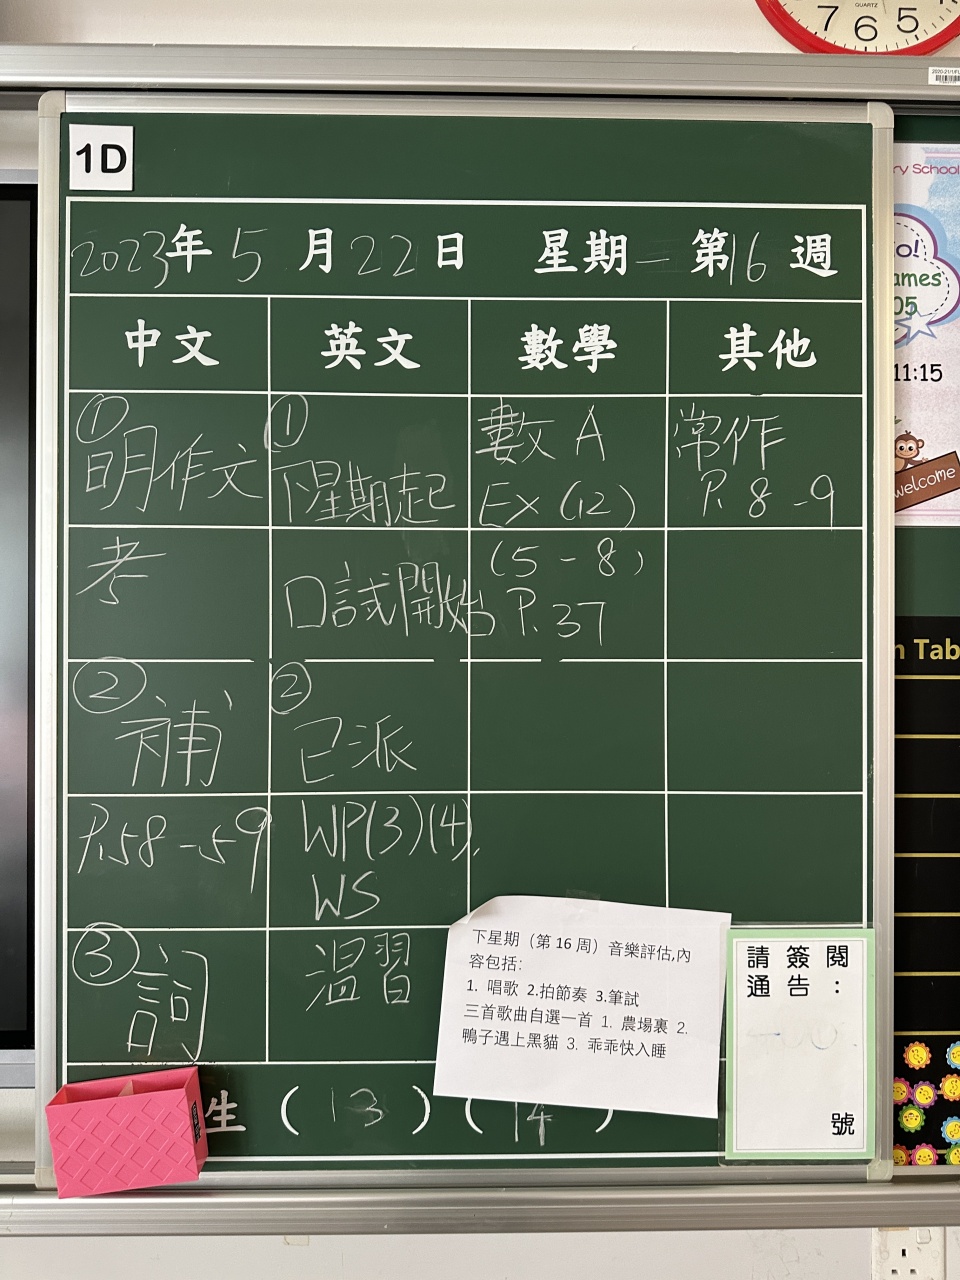 QUARTZ
7 6 5
1D
2023年 5 月 22 日 星期一 第16 週
中文 英文 數學 其他
① 明作文
考
② 補
P.58-59
③ 詞
① 下星期起
口試開始
② 已派
WP(3)(4),
WS
溫習
數 A
Ex (12)
(5-8)
P.37
常作
P. 8-9
生 (13) (14)
下星期（第 16 周）音樂評估,內
容包括：
1. 唱歌 2.拍節奏 3.筆試
三首歌曲自選一首 1. 農場裏 2.
鴨子遇上黑貓 3. 乖乖快入睡
請簽閱
通告：
號
ry School
o!
ames
05
11:15
welcome
n Tab